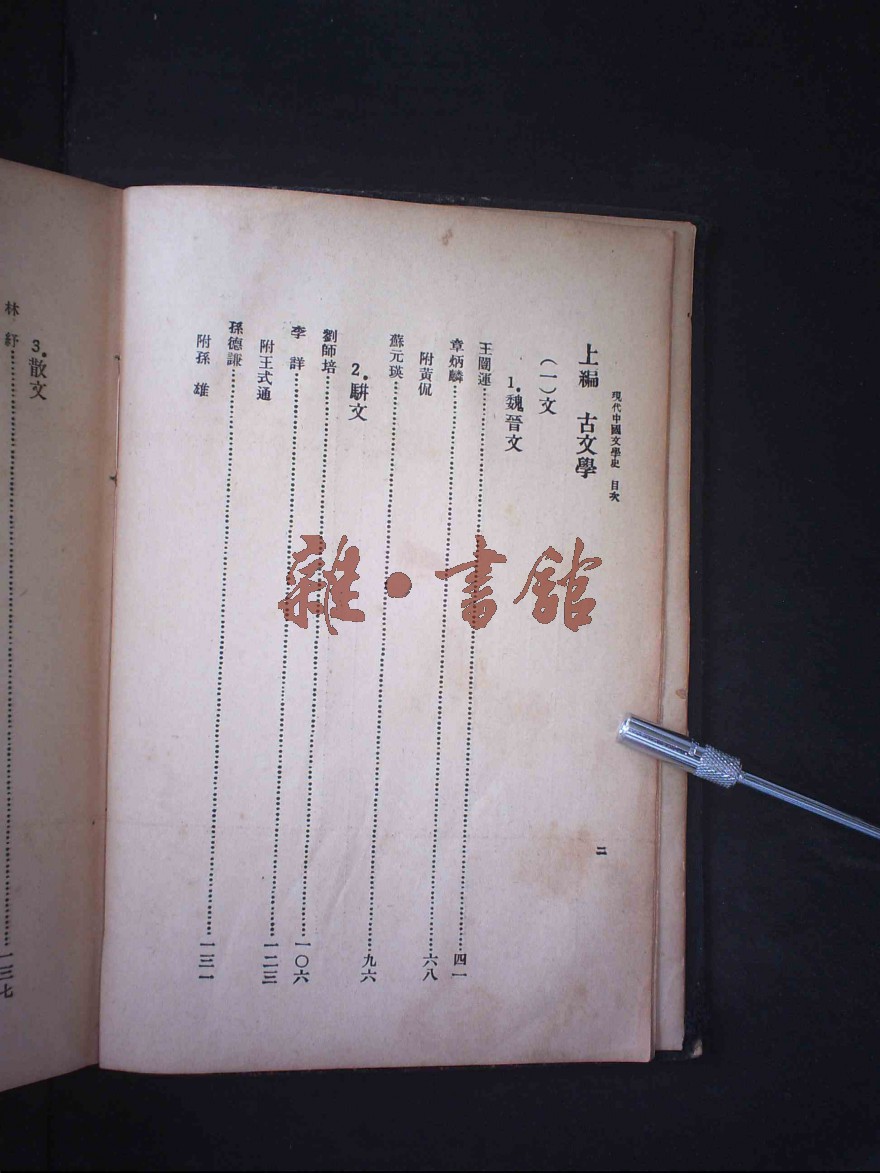 現代中國文學史 目次
二
上編 古文學
（一）文
1.魏晉文
王闓運……四一
章炳麟……六八
附黃侃
蘇元瑛……九六
2.駢文
劉師培……一〇六
李詳……一二三
附王式通
孫德謙……一三一
附孫雄
3.散文
林紓……一三七
雜·書館